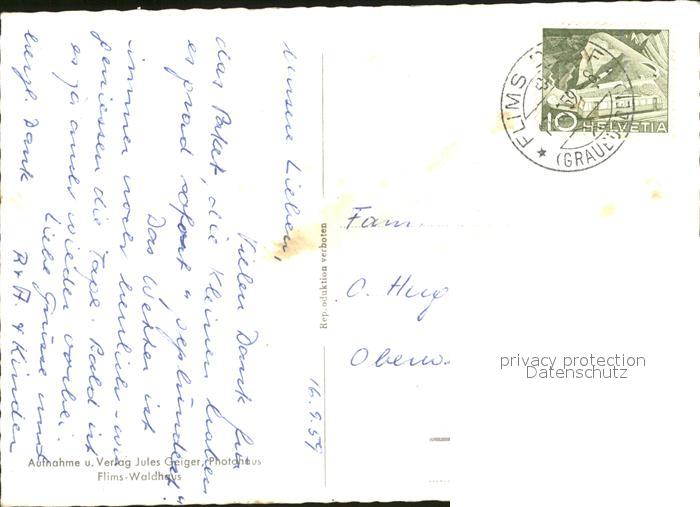 16.9.59
Unsere Lieben,
Vielen Dank für
das Paket, die Kleinen haben
es grad sofort "geplündert".
Das Wetter ist
immer noch herrlich - wir
geniessen die Tage. Bald ist
es ja auch wieder vorbei.
Liebe Grüsse und
herzl. Dank
R + A. + Kinder
Aufnahme u. Verlag Jules Geiger, Photohaus
Flims-Waldhaus
Reproduktion verboten
Fam.
O. Hug
Ober
FLIMS
(GRAUB
10 HELVETIA
privacy protection
Datenschutz